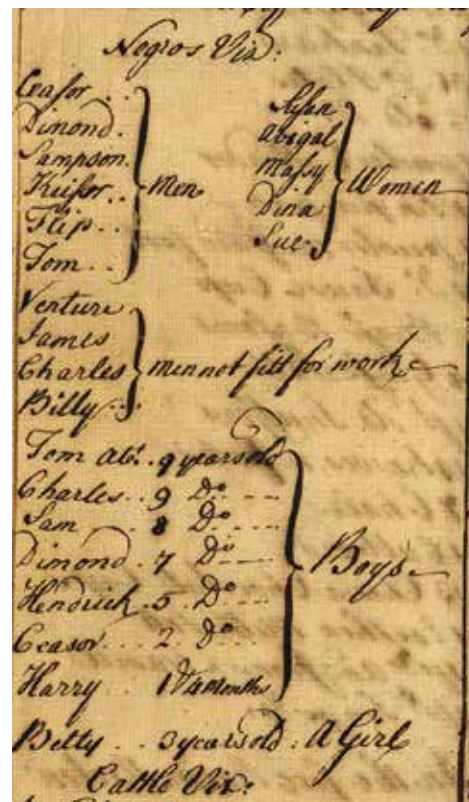 Negros Viz:
Ceasor ..
Dimond.
Sampson.
Keisar..
Flip ..
Tom ..
Men
Susan
Abigal
Massy
Dina
Sue.
Women
Venture
James
Charles
Billy ...
men not fitt for work
Tom abt. 9 years old
Charles .. 9 Do ....
Sam .. 8 Do ....
Dimond . 7 Do ....
Hendrick . 5 Do ....
Ceasor ... 2 Do ...
Harry ... 1 & 4 months
Boys
Betty .. 3 years old : A Girl
Cattle Viz: